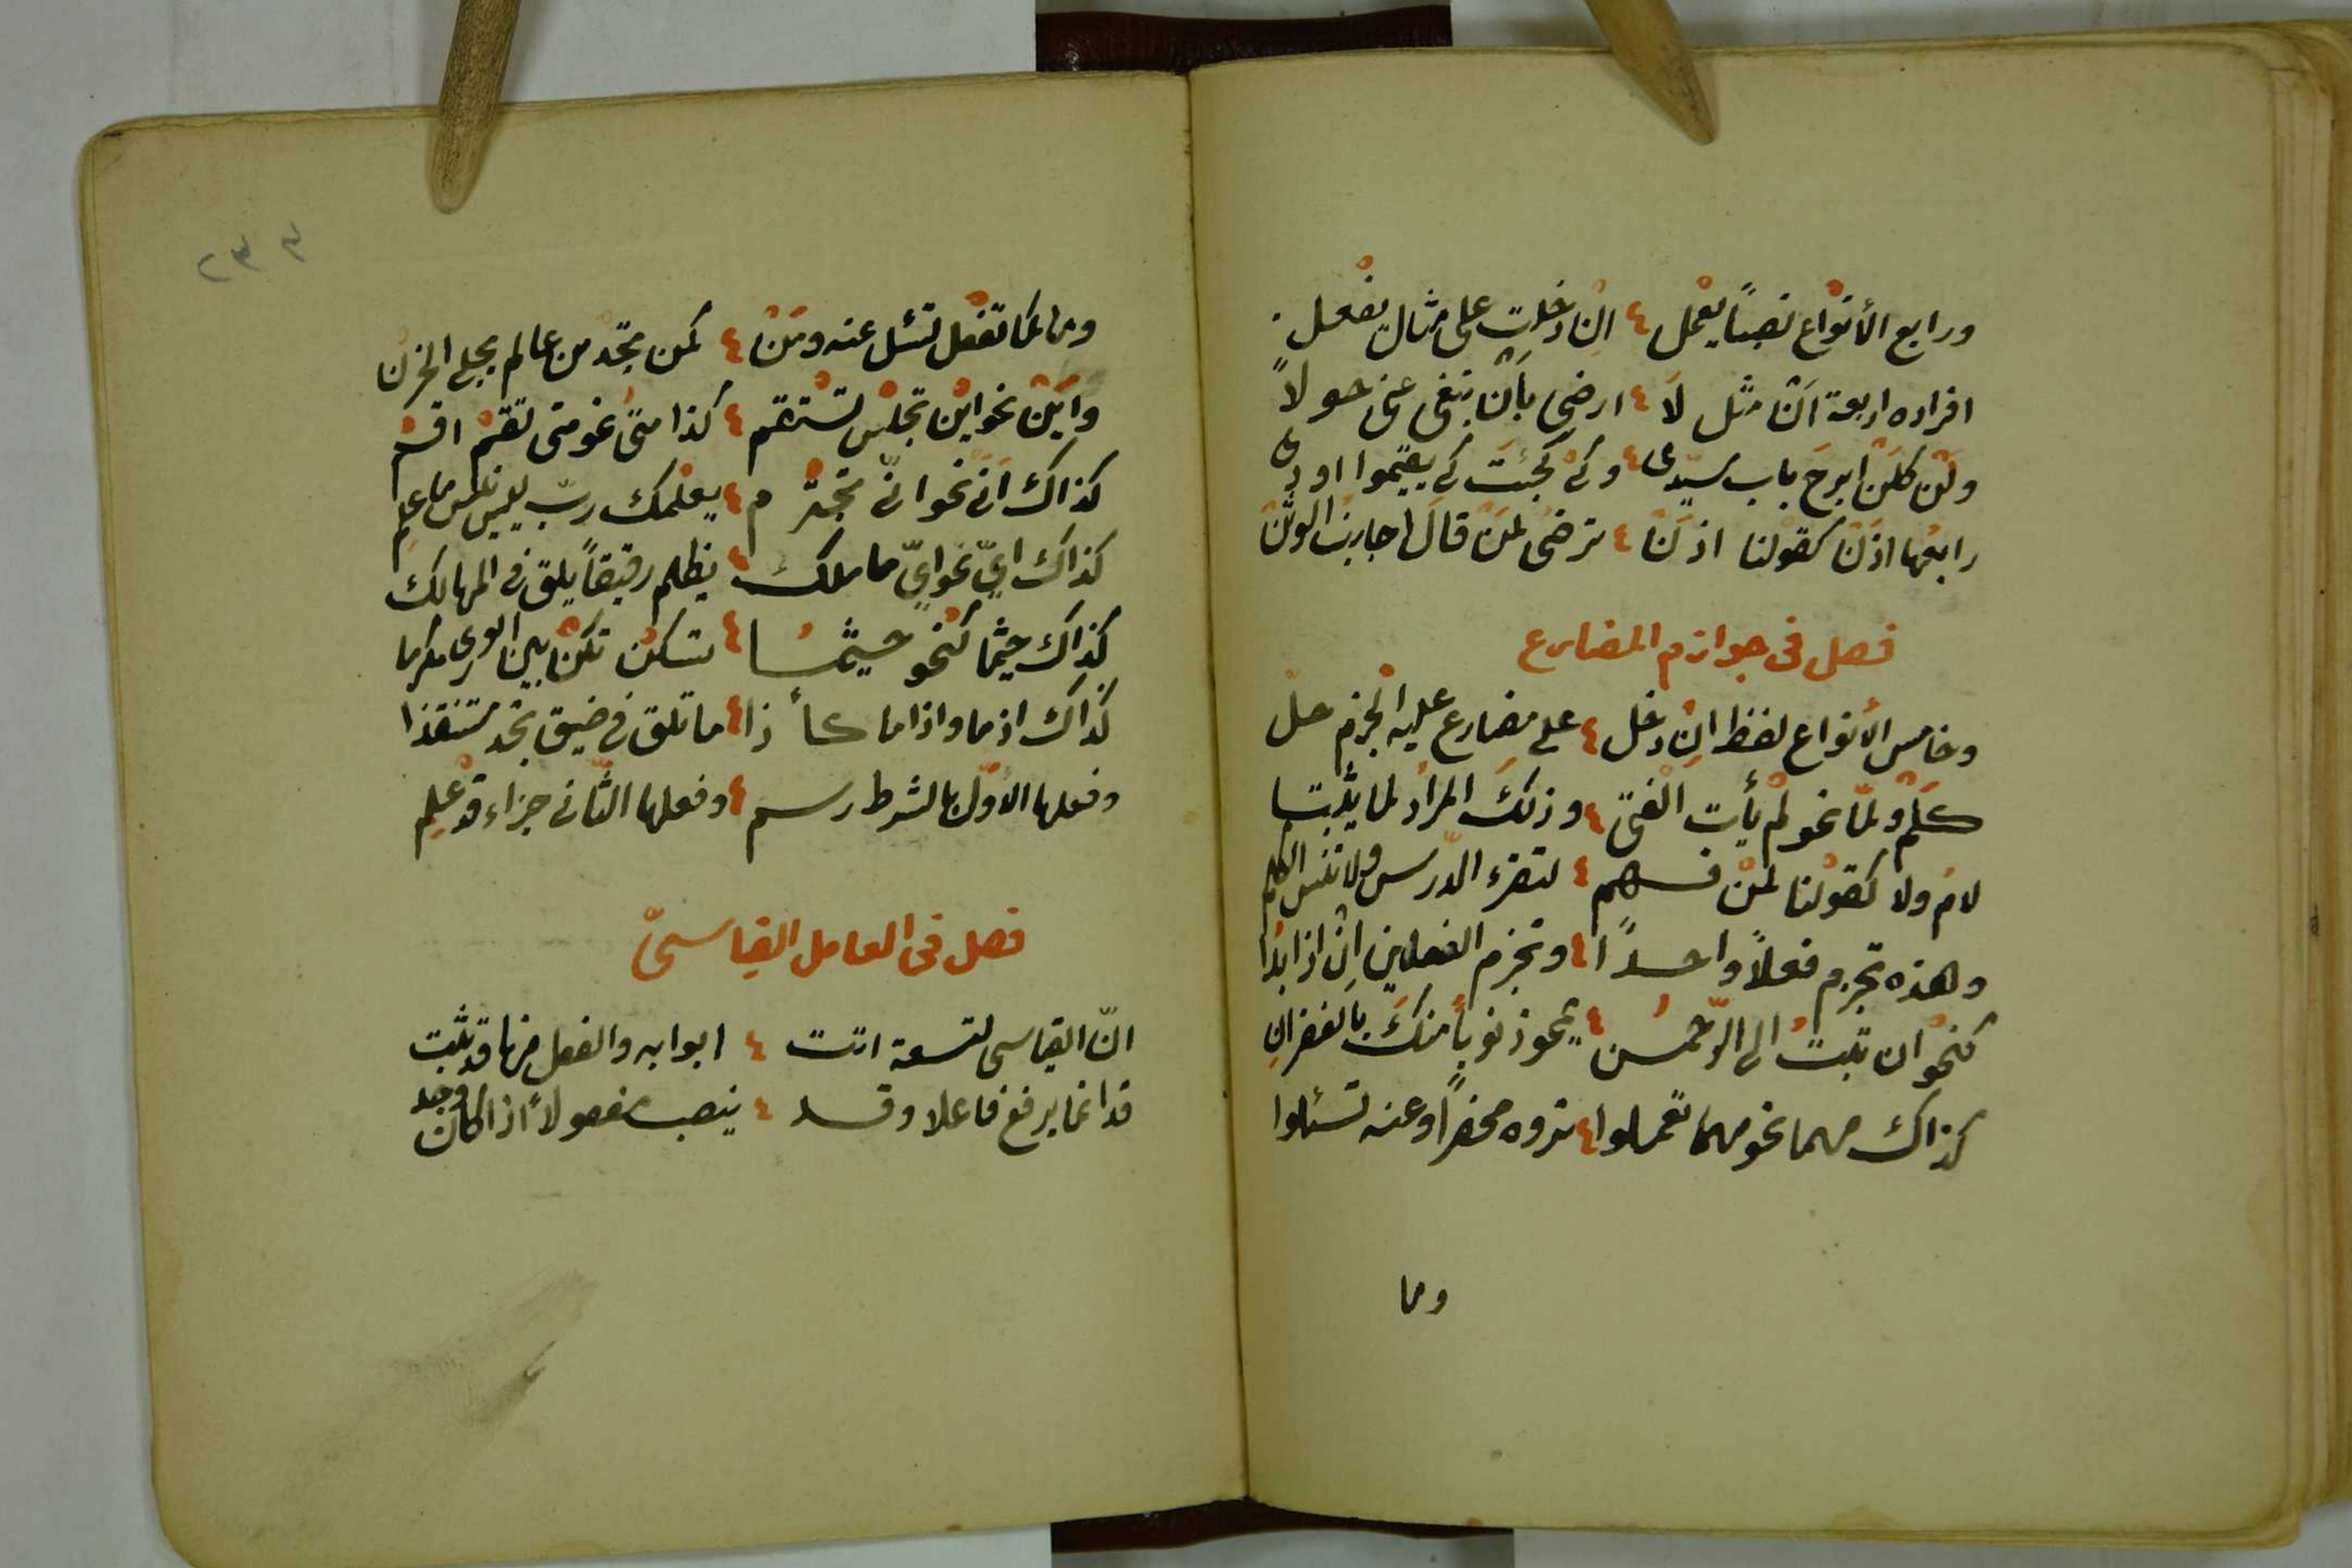 ورابع الأنواع نصباً يعمل ٤ ان دخلت على مثال يفعل
افراده اربعة ان مثل لا ٤ ارضى بأن تبغى عنى حولاً
ولن كلن ابرح باب سيدى ٤ وكى كجئت كى يقيموا اودى
رابعها اذن كقولنا اذن ٤ ترضى لمن قال احارب الوثن
فصل فى جوازم المضارع
وخامس الأنواع لفظ ان دخل ٤ على مضارع عليه الجزم حل
كلم ولمّا نحو لم يأت الفتى ٤ وذلك المراد لما يثبتا
لام ولا كقولنا لمن فهم ٤ لتقرء الدّرس ولا تنس الكلم
وهذه تجزم فعلاً واحداً ٤ وتجزم الفعلين ان اذا بدا
كنحو ان تبت الى الرّحمن ٤ يمحو ذنوباً منك بالغفران
كذاك مهما نحو مهما تعملوا ٤ تروه محضراً وعنه تسئلوا
وما
٢٣٣
وما كما تفعل تسئل عنه ومن ٤ كمن تجد من عالم يجلى الحزن
واين نحو اين تجلس تستقم ٤ كذا متى نحو متى تقم اقم
كذاك انّى نحو انّى تجترم ٤ يعلمك ربّ ليس ما علم
كذاك ايّ نحو ايّ ما ملك ٤ يظلم رقيقاً يلق فى المهالك
كذاك حيثما كنحو حيثما ٤ تسكن تكن بين الورى مكرما
كذاك اذما واذا ما كأذا ٤ ما تلق فى ضيق تجد مستنقذا
وفعلها الأوّل بالشرط رسم ٤ وفعلها الثّانى جزاء قد علم
فصل فى العامل القياسىّ
انّ القياسى لتسعة اتت ٤ ابوابه والفعل منها قد ثبت
قد انما يرفع فاعلا وقد ٤ ينصب مفعولاً اذا كان وجد